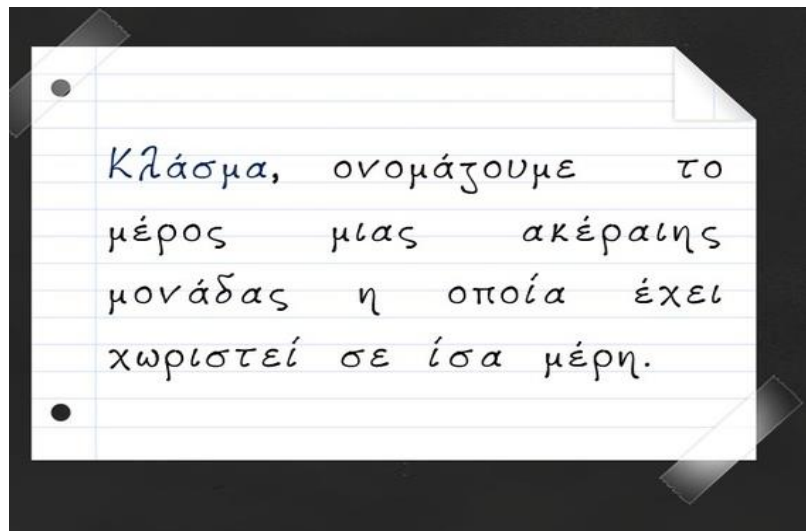 Κλάσμα, ονομάζουμε το
μέρος μιας ακέραιης
μονάδας η οποία έχει
χωριστεί σε ίσα μέρη.